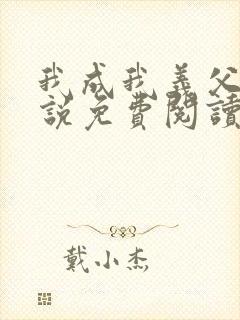 我成我義父
說免費閱讀
戴小杰